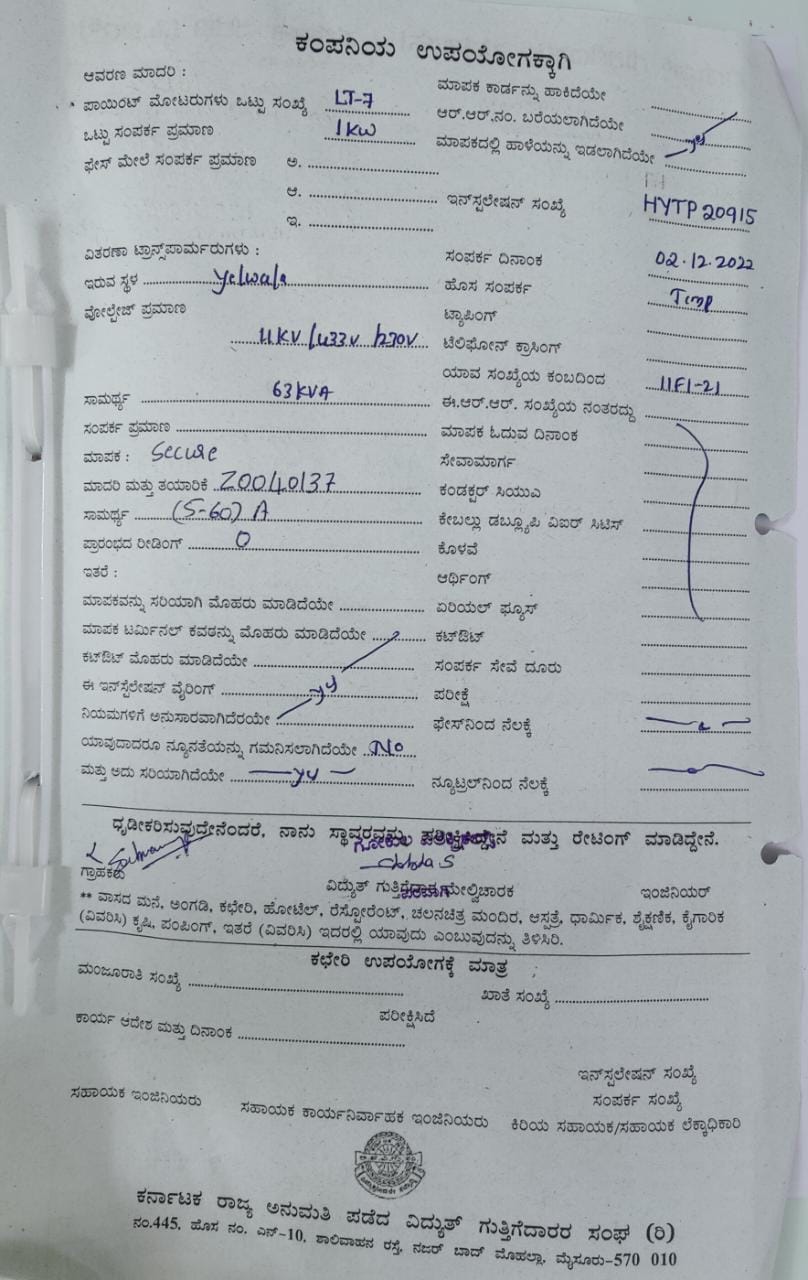 ಕಂಪನಿಯ ಉಪಯೋಗಕ್ಕಾಗಿ
ಆವರಣ ಮಾದರಿ :
ಮಾಪಕ ಕಾರ್ಡನ್ನು ಹಾಕಿದೆಯೇ
ಪಾಯಿಂಟ್ ಮೋಟರುಗಳು ಒಟ್ಟು ಸಂಖ್ಯೆ LT-7
ಆರ್.ಆರ್.ನಂ. ಬರೆಯಲಾಗಿದೆಯೇ
ಒಟ್ಟು ಸಂಪರ್ಕ ಪ್ರಮಾಣ 1KW
ಮಾಪಕದಲ್ಲಿ ಹಾಳೆಯನ್ನು ಇಡಲಾಗಿದೆಯೇ
ಫೇಸ್ ಮೇಲೆ ಸಂಪರ್ಕ ಪ್ರಮಾಣ ಅ.
ಆ.
ಇನ್‌ಸ್ಪಲೇಷನ್ ಸಂಖ್ಯೆ HYTP 20915
ಇ.
ವಿತರಣಾ ಟ್ರಾನ್ಸ್‌ಪಾರ್ಮರುಗಳು :
ಸಂಪರ್ಕ ದಿನಾಂಕ 02.12.2022
ಇರುವ ಸ್ಥಳ Yelwala
ಹೊಸ ಸಂಪರ್ಕ Temp
ವೋಲ್ಟೇಜ್ ಪ್ರಮಾಣ
ಟ್ಯಾಪಿಂಗ್
11KV/433V/270V
ಟೆಲಿಫೋನ್ ಕ್ರಾಸಿಂಗ್
ಯಾವ ಸಂಖ್ಯೆಯ ಕಂಬದಿಂದ 11F1-21
ಸಾಮರ್ಥ್ಯ 63KVA
ಈ.ಆರ್.ಆರ್. ಸಂಖ್ಯೆಯ ನಂತರದ್ದು
ಸಂಪರ್ಕ ಪ್ರಮಾಣ
ಮಾಪಕ ಓದುವ ದಿನಾಂಕ
ಮಾಪಕ : Secure
ಸೇವಾಮಾರ್ಗ
ಮಾದರಿ ಮತ್ತು ತಯಾರಿಕೆ Z0040137
ಕಂಡಕ್ಟರ್ ಸಿಯುಎ
ಸಾಮರ್ಥ್ಯ (5-60) A
ಕೇಬಲ್ಲು ಡಬ್ಲ್ಯೂಪಿ ವಿಐರ್ ಸಿಟಿಸ್
ಪ್ರಾರಂಭದ ರೀಡಿಂಗ್ 0
ಕೊಳವೆ
ಇತರೆ :
ಆರ್ಥಿಂಗ್
ಮಾಪಕವನ್ನು ಸರಿಯಾಗಿ ಮೊಹರು ಮಾಡಿದೆಯೇ
ಏರಿಯಲ್ ಫ್ಯೂಸ್
ಮಾಪಕ ಟರ್ಮಿನಲ್ ಕವಠನ್ನು ಮೊಹರು ಮಾಡಿದೆಯೇ
ಕಟ್‌ಔಟ್
ಕಟ್‌ಔಟ್ ಮೊಹರು ಮಾಡಿದೆಯೇ
ಸಂಪರ್ಕ ಸೇವೆ ದೂರು
ಈ ಇನ್‌ಸ್ಪೆಲೇಷನ್ ವೈರಿಂಗ್
ಪರೀಕ್ಷೆ
ನಿಯಮಗಳಿಗೆ ಅನುಸಾರವಾಗಿದೆರಯೇ
ಫೇಸ್‌ನಿಂದ ನೆಲಕ್ಕೆ
ಯಾವುದಾದರೂ ನ್ಯೂನತೆಯನ್ನು ಗಮನಿಸಲಾಗಿದೆಯೇ No
ಮತ್ತು ಅದು ಸರಿಯಾಗಿದೆಯೇ
ನ್ಯೂಟ್ರಲ್‌ನಿಂದ ನೆಲಕ್ಕೆ
ಧೃಡೀಕರಿಸುವುದೇನೆಂದರೆ, ನಾನು ಸ್ಥಾವರವನ್ನು ಪರೀಕ್ಷಿಸಿದ್ದೇನೆ ಮತ್ತು ರೇಟಿಂಗ್ ಮಾಡಿದ್ದೇನೆ.
ಗ್ರಾಹಕರು
ವಿದ್ಯುತ್ ಗುತ್ತಿಗೆದಾರ ಮೇಲ್ವಿಚಾರಕ
ಇಂಜಿನಿಯರ್
** ವಾಸದ ಮನೆ, ಅಂಗಡಿ, ಕಛೇರಿ, ಹೋಟೆಲ್, ರೆಸ್ಟೋರೆಂಟ್, ಚಲನಚಿತ್ರ ಮಂದಿರ, ಆಸ್ಪತ್ರೆ, ಧಾರ್ಮಿಕ, ಶೈಕ್ಷಣಿಕ, ಕೈಗಾರಿಕ
(ವಿವರಿಸಿ) ಕೃಷಿ, ಪಂಪಿಂಗ್, ಇತರೆ (ವಿವರಿಸಿ) ಇದರಲ್ಲಿ ಯಾವುದು ಎಂಬುವುದನ್ನು ತಿಳಿಸಿರಿ.
ಕಛೇರಿ ಉಪಯೋಗಕ್ಕೆ ಮಾತ್ರ
ಮಂಜೂರಾತಿ ಸಂಖ್ಯೆ
ಖಾತೆ ಸಂಖ್ಯೆ
ಪರೀಕ್ಷಿಸಿದೆ
ಕಾರ್ಯ ಆದೇಶ ಮತ್ತು ದಿನಾಂಕ
ಇನ್‌ಸ್ಪಲೇಷನ್ ಸಂಖ್ಯೆ
ಸಂಪರ್ಕ ಸಂಖ್ಯೆ
ಸಹಾಯಕ ಇಂಜಿನಿಯರು
ಸಹಾಯಕ ಕಾರ್ಯನಿರ್ವಾಹಕ ಇಂಜಿನಿಯರು
ಕಿರಿಯ ಸಹಾಯಕ/ಸಹಾಯಕ ಲೆಕ್ಕಾಧಿಕಾರಿ
ಕರ್ನಾಟಕ ರಾಜ್ಯ ಅನುಮತಿ ಪಡೆದ ವಿದ್ಯುತ್ ಗುತ್ತಿಗೆದಾರರ ಸಂಘ (ರಿ)
ನಂ.445, ಹೊಸ ನಂ. ಎನ್-10, ಶಾಲಿವಾಹನ ರಸ್ತೆ, ನಜರ್ ಬಾದ್ ಮೊಹಲ್ಲಾ, ಮೈಸೂರು-570 010